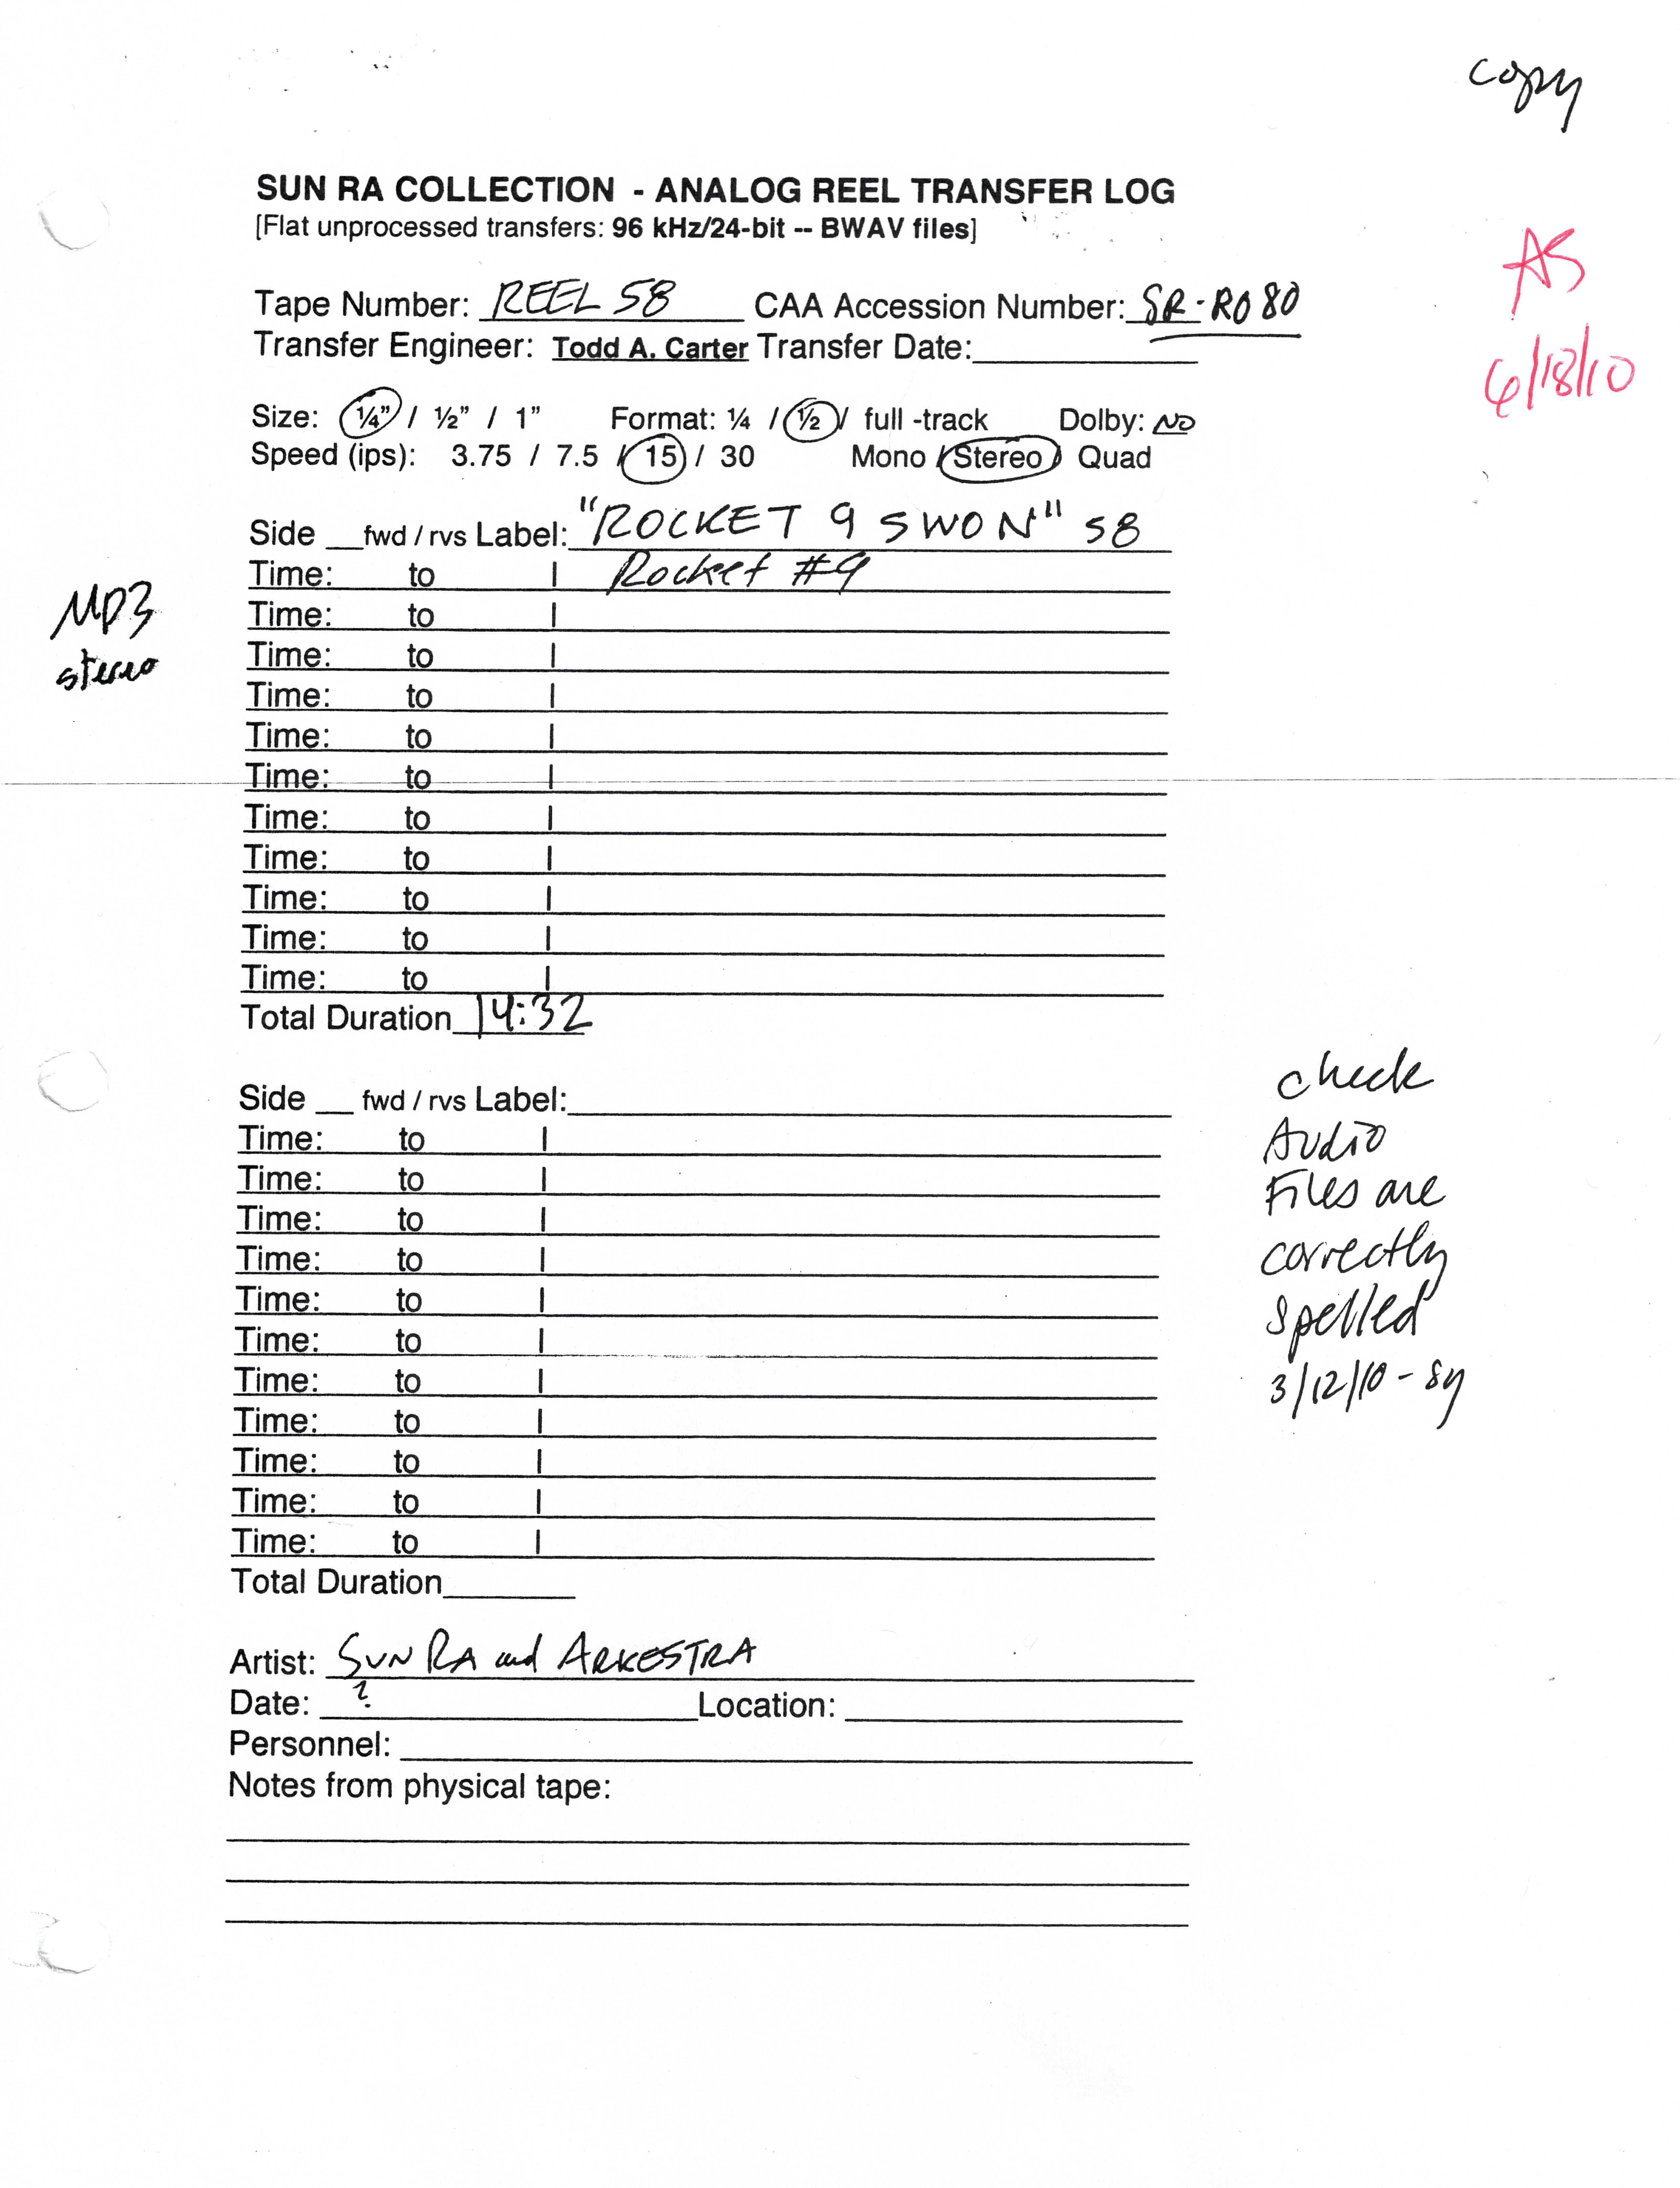 copy
SUN RA COLLECTION - ANALOG REEL TRANSFER LOG
[Flat unprocessed transfers: 96 kHz/24-bit -- BWAV files]
AS
6/18/10
Tape Number: REEL 58 CAA Accession Number: SR-R080
Transfer Engineer: Todd A. Carter Transfer Date:
Size: ¼" / ½" / 1" Format: ¼ / ½ / full -track Dolby: NO
Speed (ips): 3.75 / 7.5 / 15 / 30 Mono / Stereo / Quad
Side __ fwd / rvs Label: "ROCKET 9 SWON" 58
Time: to | Rocket #9
MP3
stereo
Time: to |
Time: to |
Time: to |
Time: to |
Time: to |
Time: to |
Time: to |
Time: to |
Time: to |
Time: to |
Total Duration 14:32
Side __ fwd / rvs Label:
Time: to |
Time: to |
Time: to |
Time: to |
Time: to |
Time: to |
Time: to |
Time: to |
Time: to |
Time: to |
Time: to |
Total Duration
check
Audio
Files are
correctly
spelled
3/12/10 - sy
Artist: SUN RA and ARKESTRA
Date: ? Location:
Personnel:
Notes from physical tape: